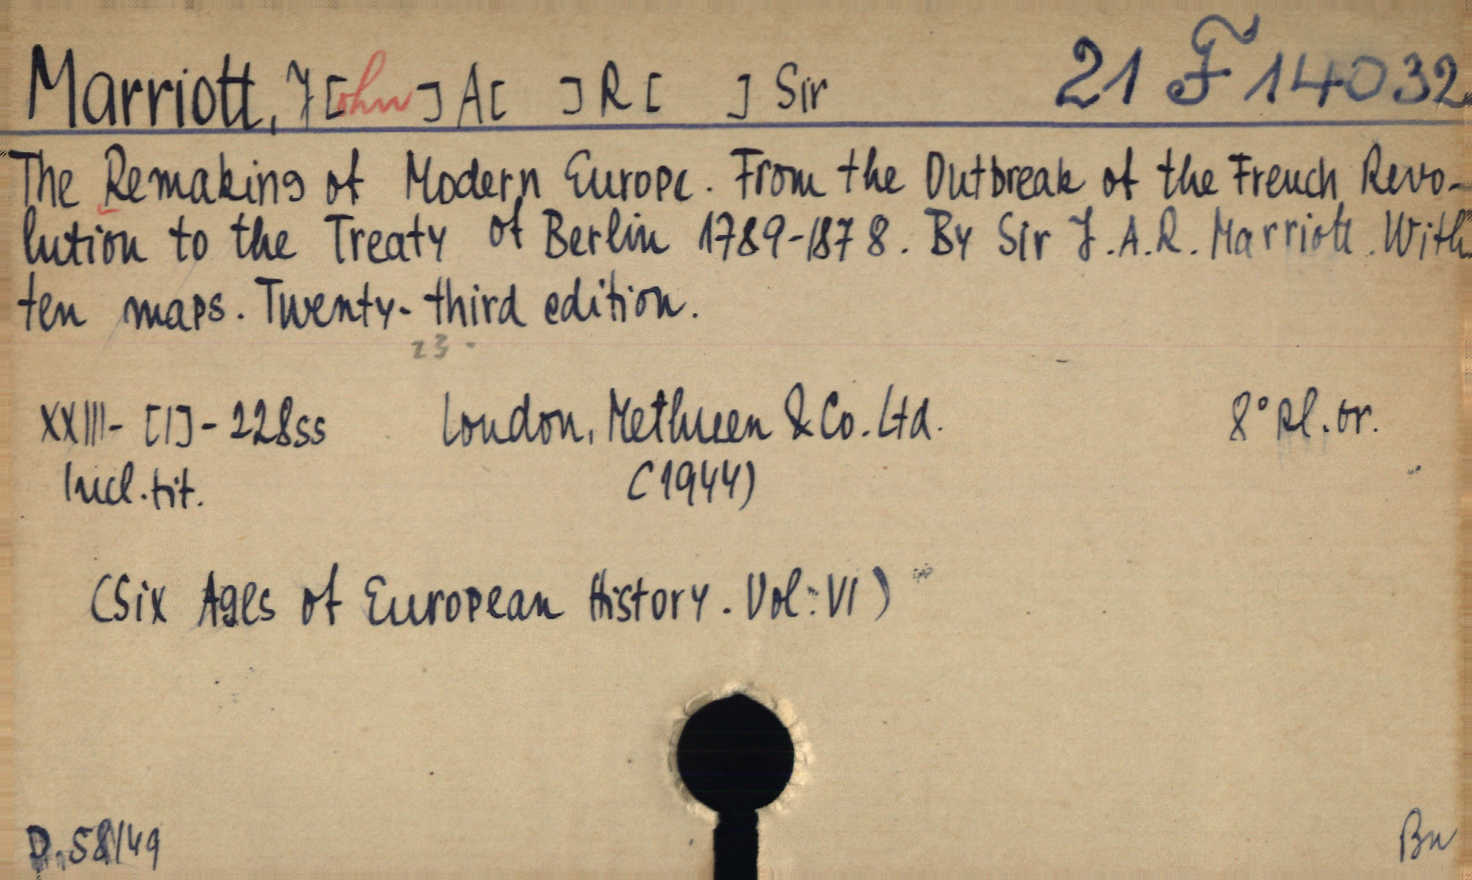 Marriott, J[ohn] A[ ] R[ ] Sir 21 F 14032
The Remaking of Modern Europe. From the Outbreak of the French Revo-
lution to the Treaty of Berlin 1789-1878. By Sir J.A.R. Marriott. With
ten maps. Twenty-third edition.
23.
XXIII-[1]-228ss London, Methuen & Co. Ltd. 8° Pl. or.
Incl. tit. (1944)
(Six Ages of European History. Vol: VI)
D. 58/49 Bn